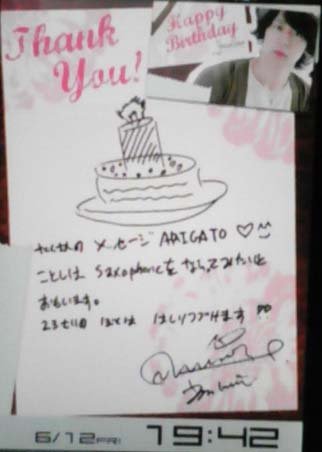 Thank You!
Happy Birthday
たくさんの メッセージ ARIGATO
ことしは Saxophoneを ならってみたいと
おもいます。
23さいの ぼくは はしりつづけます
6/12 FRI 19:42